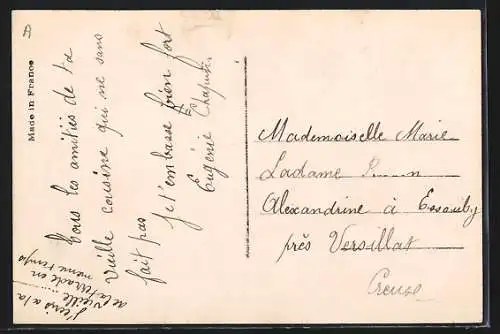 Made in France
Tous les amitiés de ta
vieille cousine qui ne sans
fait pas
je t'embasse bien fort
Eugénie Chapuis.
j'ecris a la
vieille
de la
en
meme temps
Mademoiselle Marie
Ladame
Alexandrine à
près Versillat
Creuse